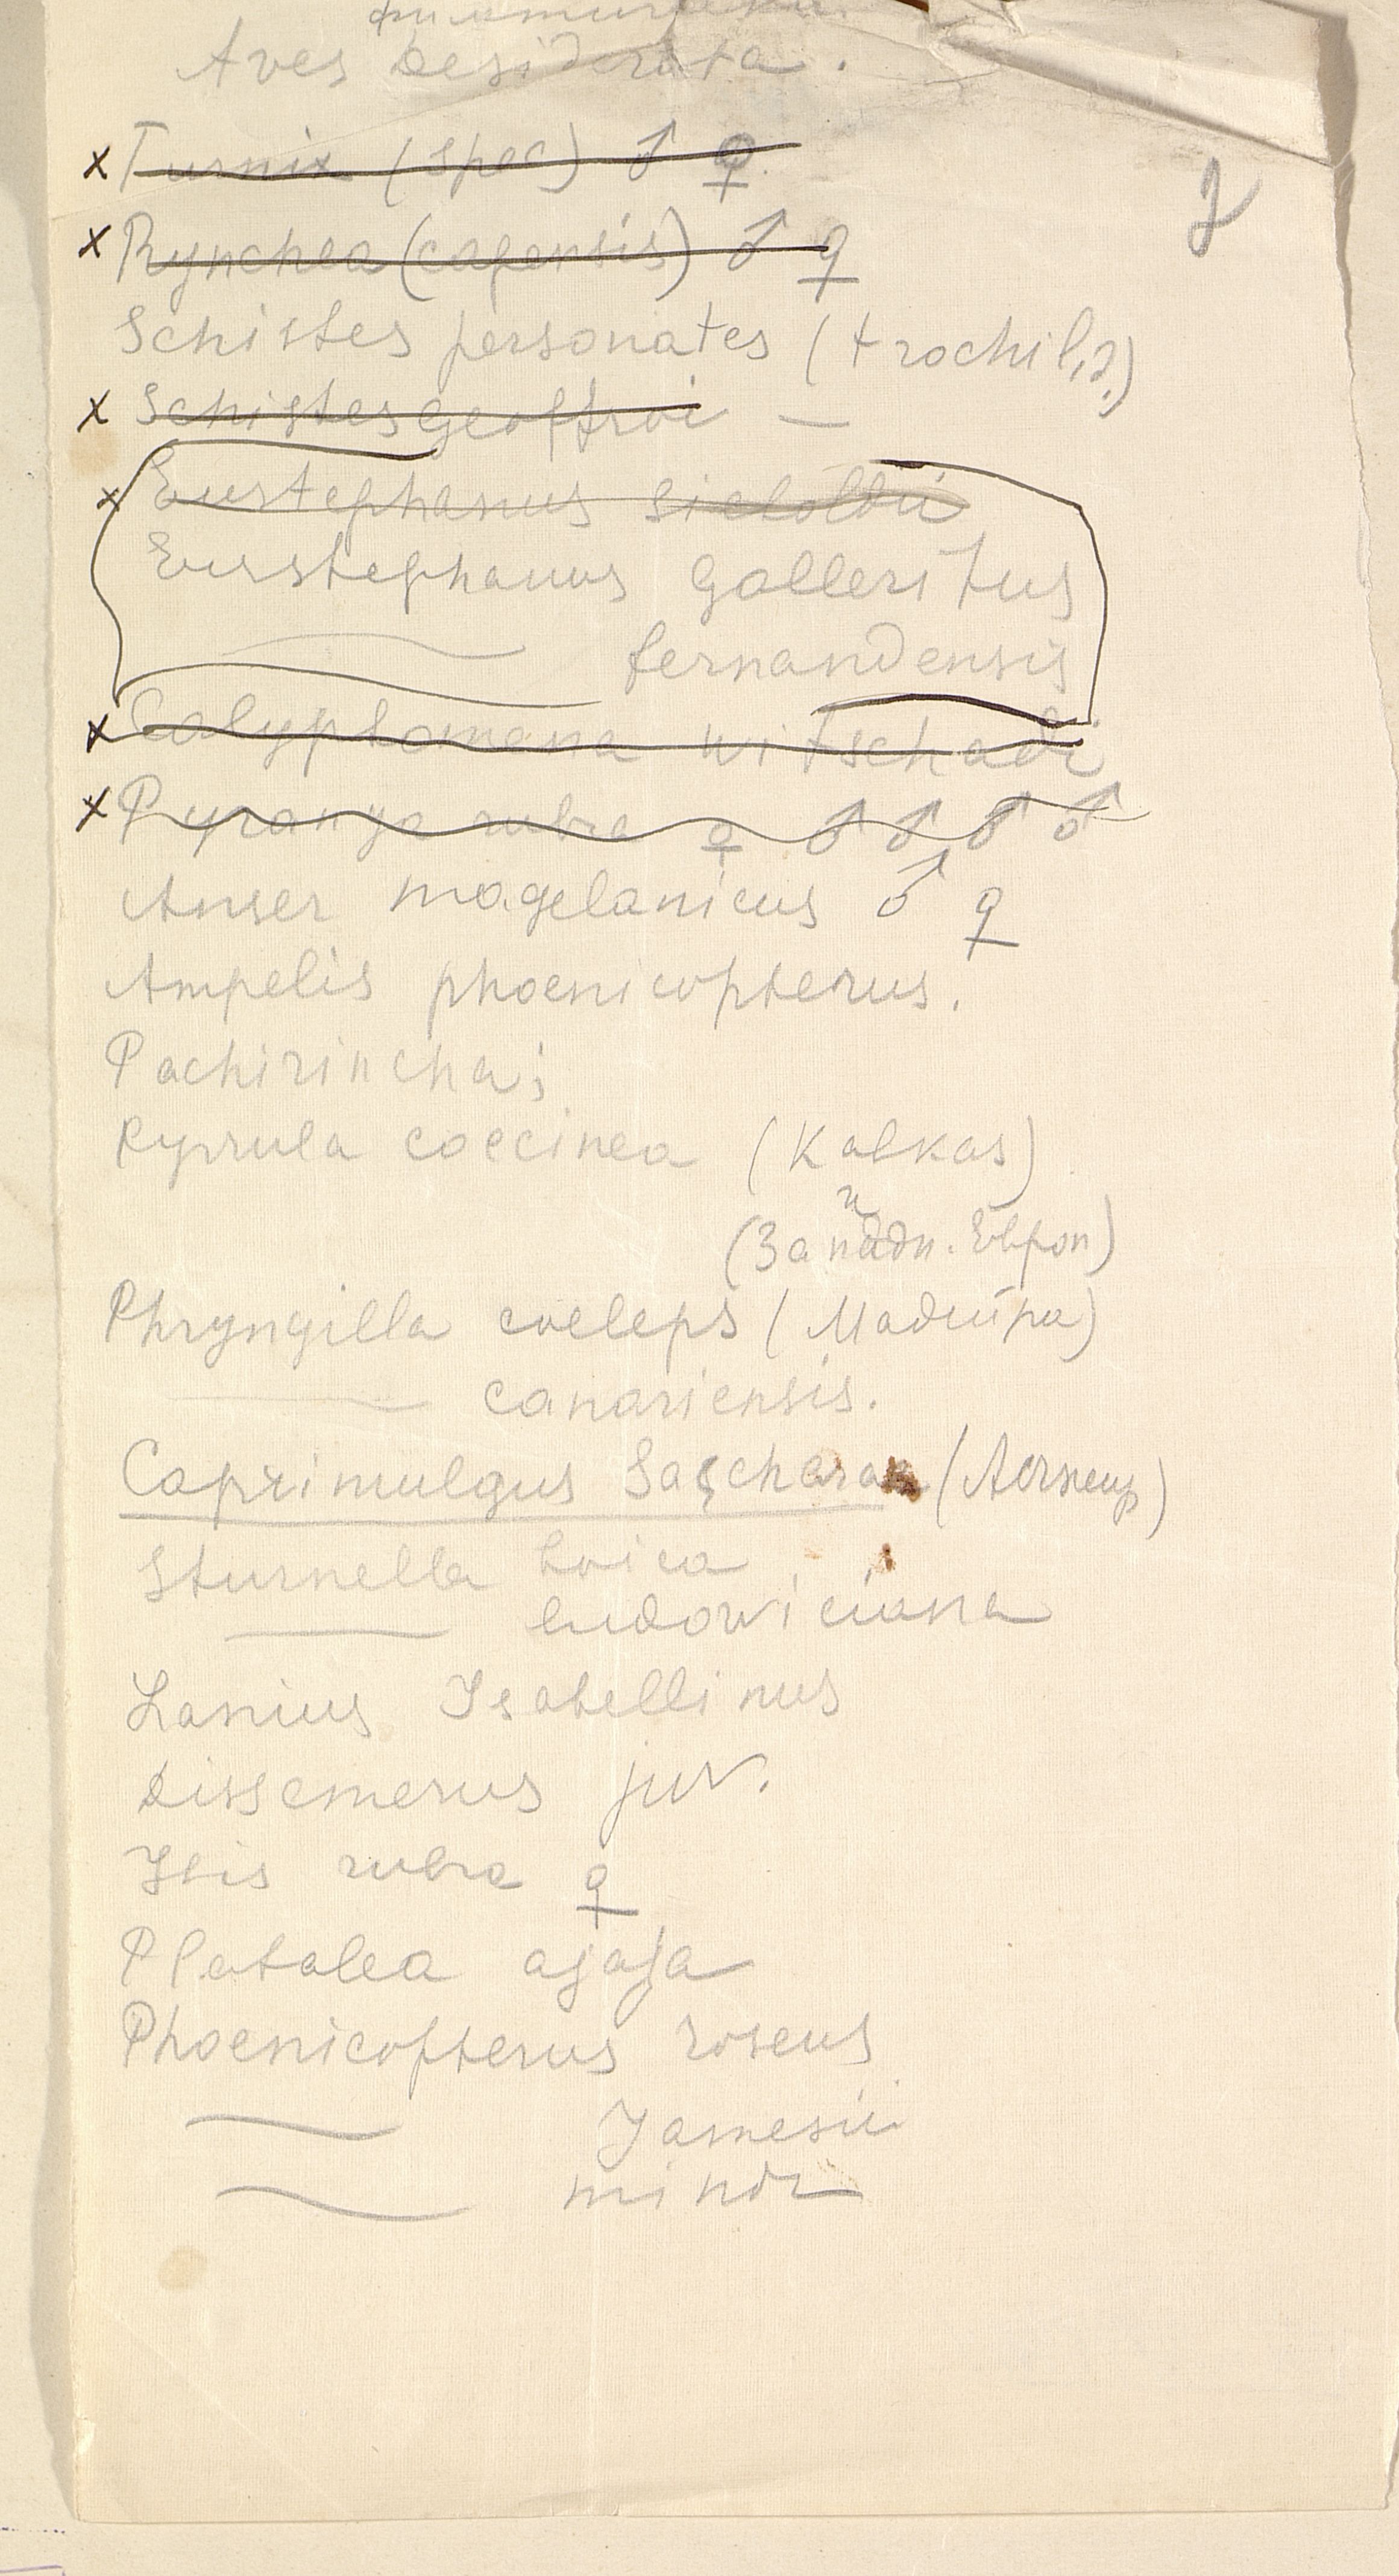 Aves desiderata.
2
x Turnix (spec) ♂ ♀
x Rynchea (capensis) ♂ ♀
Schistes personates (trochil,?)
x Schistes Geoffroi —
x Eustephanus
Eusstephanus Galleritus
— fernandensis
x Calyptomena witschadi
x Pyranga rubra ♀ ♂ ♂ ♂ ♂
Anser magelanicus ♂ ♀
Ampelis phoenicopterus.
Pachirincha;
Pyrrula coccinea (Kabkas)
и
(Западн. Европ)
Phryngilla coeleps (Мадейра)
— canariensis.
Caprimulgus (Алжир)
Sturnella loica
— ludowiciana
Lanius Isabellinus
Dissemerus juv.
Ibis rubra ♀
Platalea ajaja
Phoenicopterus roseus
— Jamesii
— minor